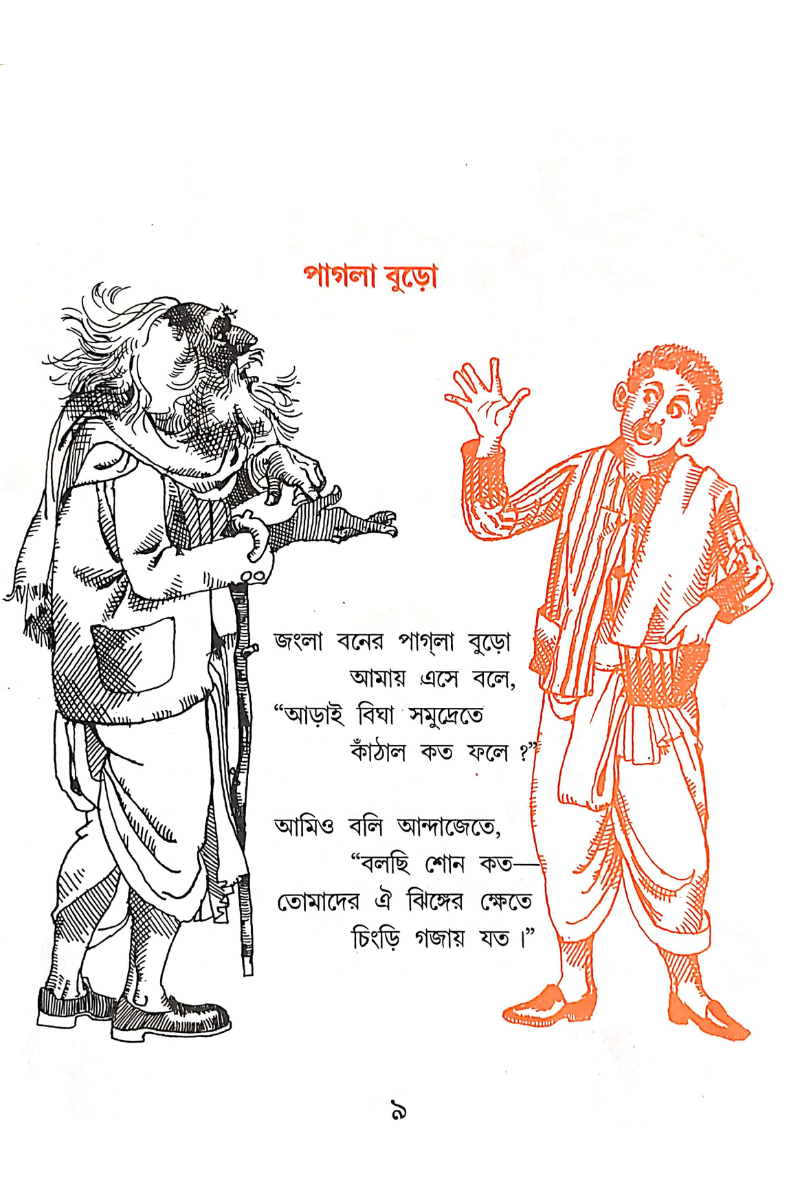 পাগলা বুড়ো
জংলা বনের পাগ্‌লা বুড়ো
আমায় এসে বলে,
“আড়াই বিঘা সমুদ্রেতে
কাঁঠাল কত ফলে ?”
আমিও বলি আন্দাজেতে,
“বলছি শোন কত—
তোমাদের ঐ ঝিঙ্গের ক্ষেতে
চিংড়ি গজায় যত।”
৯